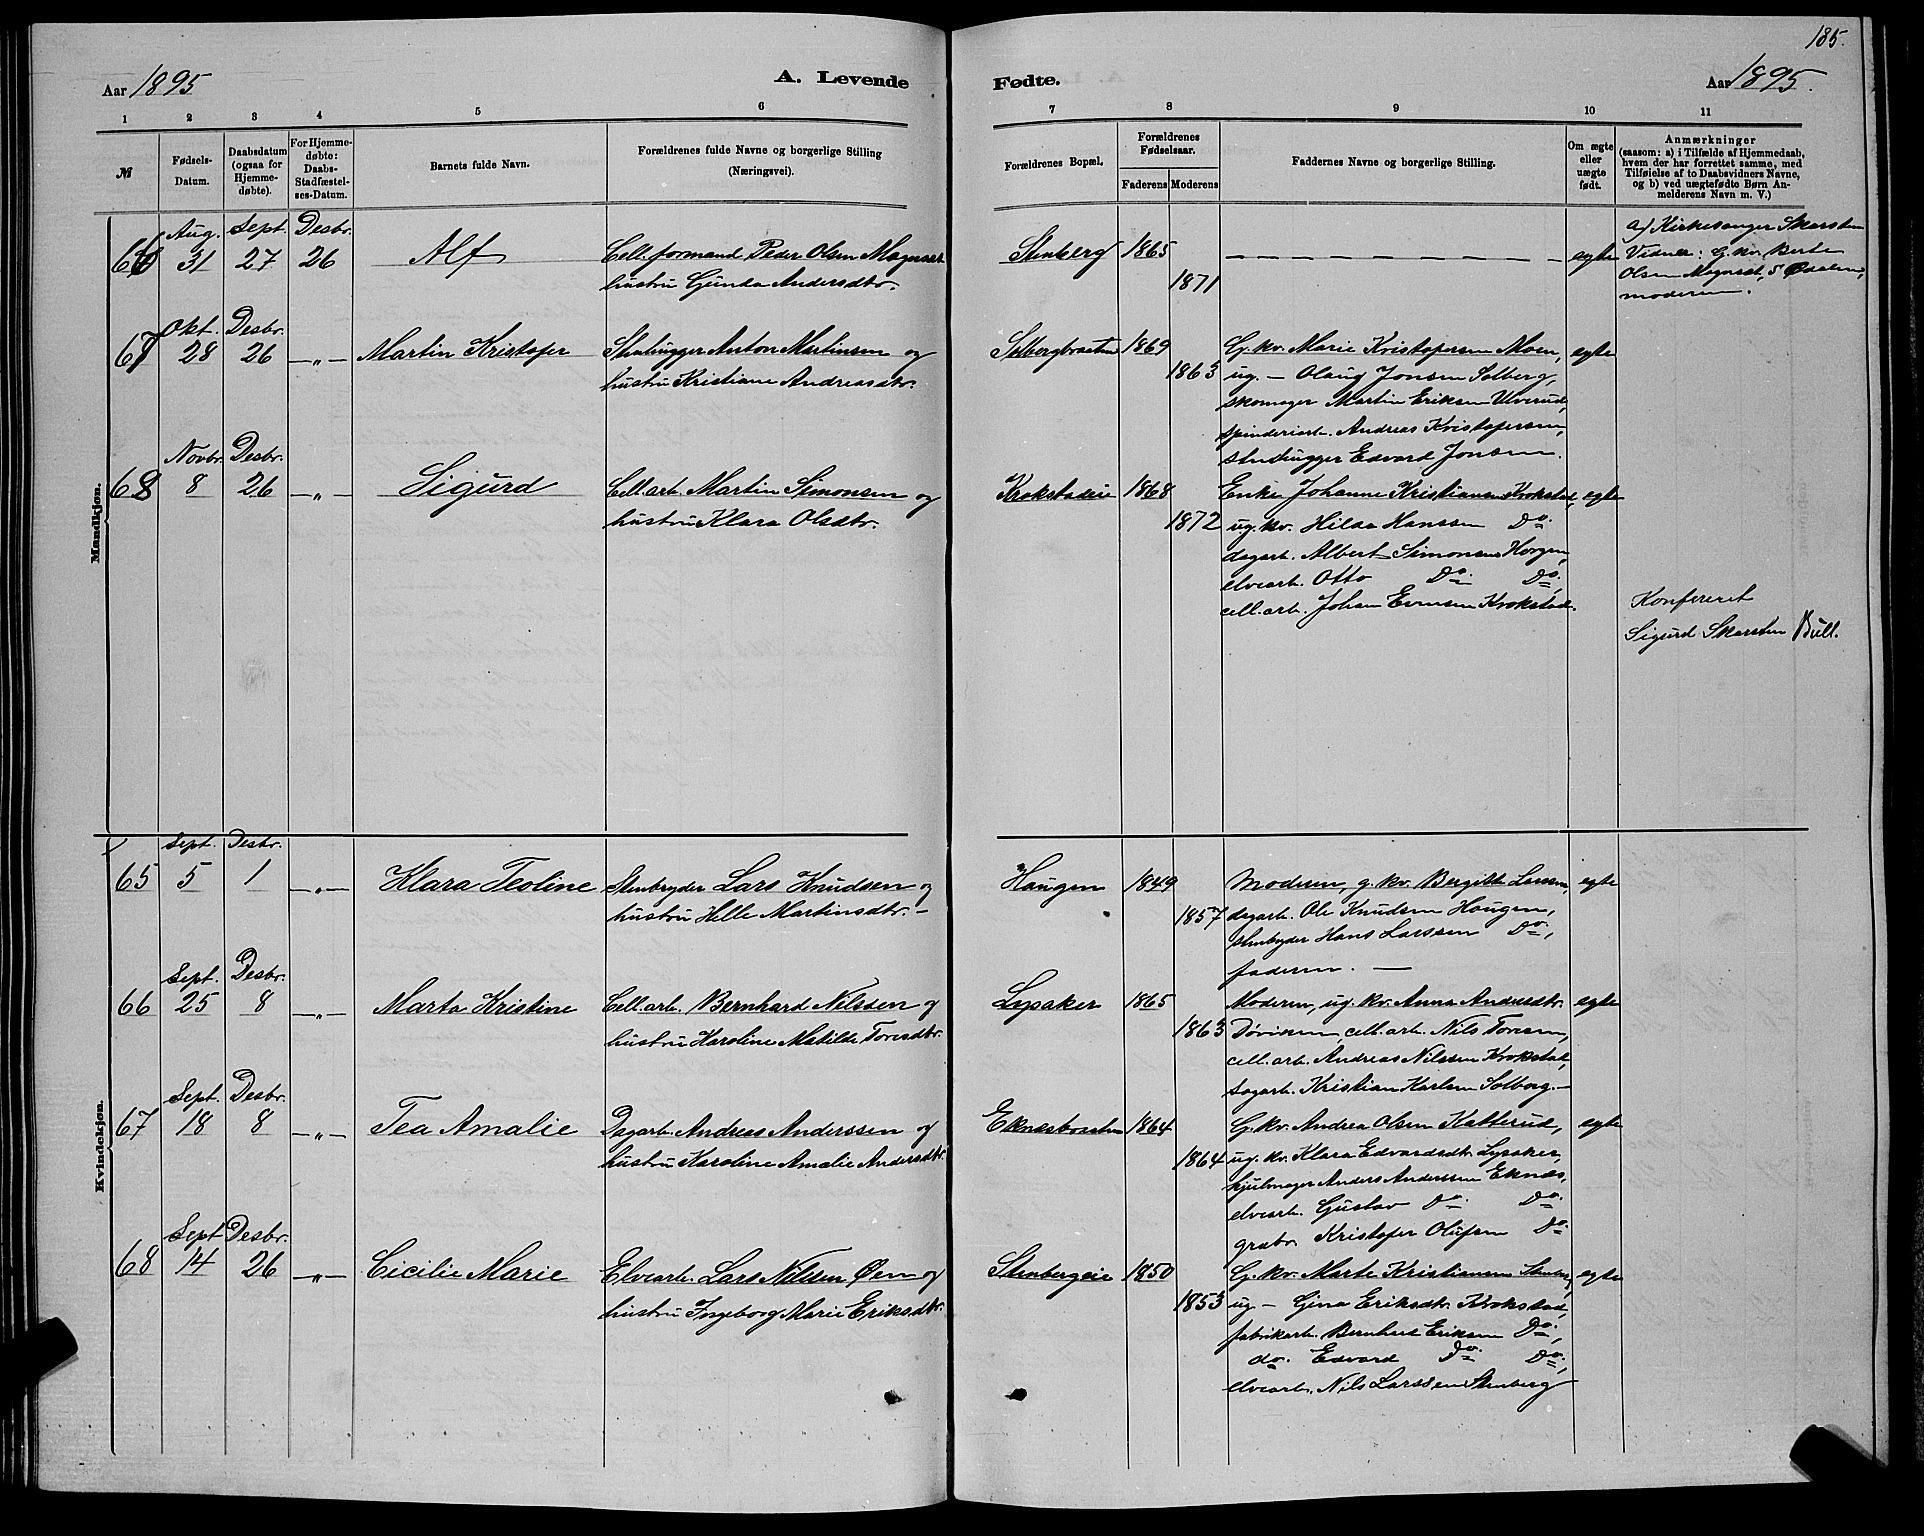 185.
Aar 1895
A. Levende
Fødte.
Aar 1895.
1 2 3 4 5 6
7 8 9 10 11
№
Fødsels-
Datum.
Daabsdatum
(ogsaa for
Hjemme-
døbte).
For Hjemme-
døbte:
Daabs-
Stadfæstel-
ses-Datum.
Barnets fulde Navn.
Forældrenes fulde Navne og borgerlige Stilling
(Næringsvei).
Forældrenes Bopæl.
Forældrenes
Fødselsaar.
Faderens Moderens
Faddernes Navne og borgerlige Stilling.
Om ægte
eller
uægte
født.
Anmærkninger
(saasom: a) i Tilfælde af Hjemmedaab,
hvem der har forrettet samme, med
Tilføielse af to Daabsvidners Navne,
og b) ved uægtefødte Børn An-
melderens Navn m. V.)
Mandkjøn.
Aug. Sept. Desbr.
66 31 27 26 Alf Celleformand Peder Olsen Magnset
hustru Gunda Andersdtr.
Stenberg 1865 egte
1871
a) Kirkesanger Skarsten
Vidner: G. kv. Berte
Olsen Magnset, S. Ødalen,
moderen.
Okt. Desbr.
67 28 26 –„– Martin Kristofer Stenhugger Anton Martinsen og
hustru Kristiane Andreasdtr.
Solbergbraaten 1869 G. kv. Marie Kristofersen Moen, egte
1863 ug. – Olaug Jonsen Solberg,
skomager Martin Eriksen Ulverud,
spinderiarb. Andreas Kristofersen,
stenhugger Edvard Jonsen.
Novbr. Desbr.
68 8 26 –„– Sigurd Cell. arb. Martin Simonsen og
hustru Klara Olsdtr.
Krokstadeie 1868 Enke Johanne Kristiansen Krokstad, egte
1872 ug. kv. Hilda Hanssen Do.
dagarb. Albert Simonsen Horgen,
elvearb. Otto Do. Do.
cell. arb. Johan Evensen Krokstad.
Konfereret
Sigurd Skarsten Bull.
Kvindekjøn.
Sept. Desbr.
65 5 1 –„– Klara Teoline Stenbryder Lars Knudsen og
hustru Helle Martinsdtr. –
Haugen 1849 Moderen, g. kv. Bergitte Larsen, egte
1857 dagarb. Ole Knudsen Haugen,
stenbryder Hans Larssen Do.,
faderen. —
Sept. Desbr.
66 25 8 –„– Marta Kristine Cell. arb. Bernhard Nilssen og
hustru Karoline Matilde Toresdtr.
Lysaker 1865 Moderen, ug. kv. Anna Andersdtr. egte
1863 Døviken, cell. arb. Nils Toresen,
cell. arb. Andreas Nilssen Krokstad,
sagarb. Kristian Karlsen Solberg. –
Sept. Desbr.
67 18 8 –„– Tea Amalie Dagarb. Andreas Anderssen og
hustru Karoline Amalie Andersdtr.
Eknesbraaten 1864 G. kv. Andrea Olsen Katterud, egte
1864 ug. kv. Klara Edvardsdtr. Lysaker,
hjulmager Anders Anderssen Eknæs,
elvearb. Gustav Do. Do.
grubr. Kristofer Olufsen Do
Sept Desbr.
68 14 26 –„– Cicilie Marie Elvearb. Lars Nilsen Øen og
hustru Ingeborg Marie Eriksdtr.
Stenbergeie 1850 G. kv. Marte Kristiansen Stenberg, egte
1853 ug. – Gina Eriksdtr. Krokstad,
fabrikarb. Bernhard Eriksen Do.,
do. Edvard Do. Do.,
elvearb. Nils Larssen Stenberg